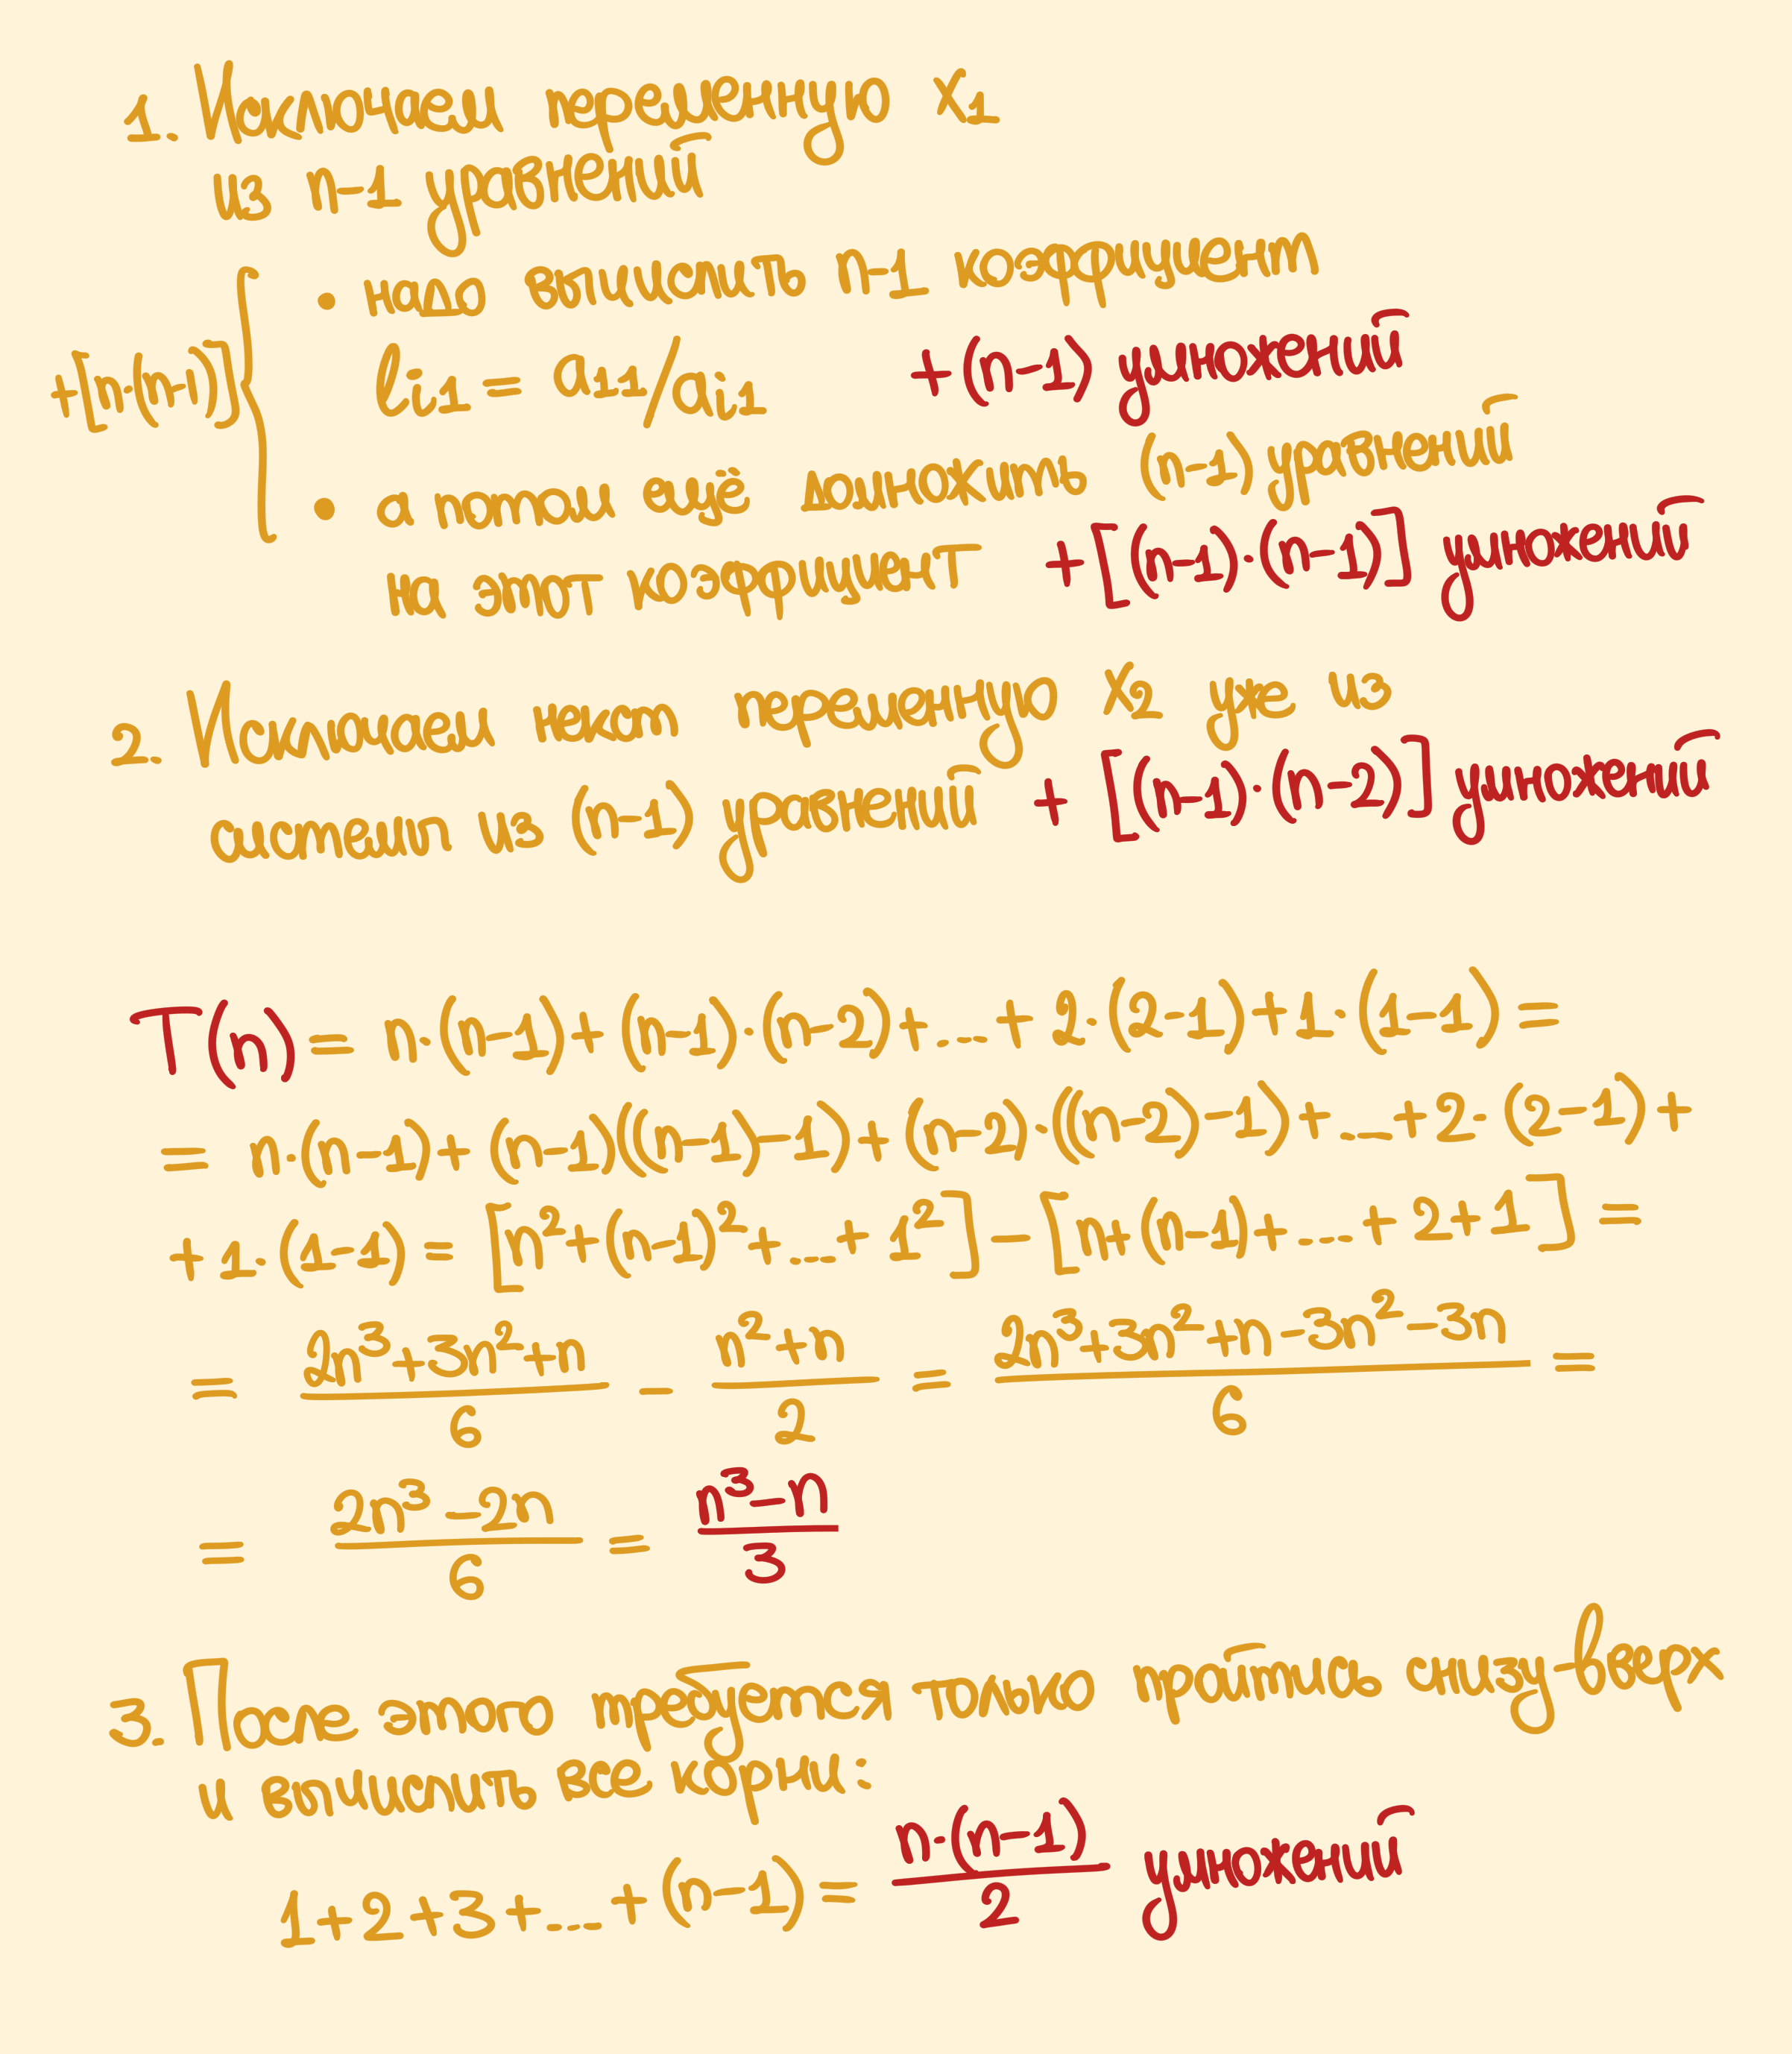 1. Исключаем переменную x₁
из n-1 уравнений
• надо вычислить n-1 коэффициент
+[n·(n-1)] { ℓᵢ₁ = a₁₁/aᵢ₁ +(n-1) умножений
• а потом ещё домножить (n-1) уравнений
на этот коэффициент +[(n-1)·(n-1)] умножений
2. Исключаем некст переменную x₂ уже из
системы из (n-1) уравнений + [(n-1)·(n-2)] умножений
T(n) = n·(n-1) + (n-1)·(n-2) + ... + 2·(2-1) + 1·(1-1) =
= n·(n-1) + (n-1)((n-1)-1) + (n-2)·((n-2)-1) + ... + 2·(2-1) +
+ 1·(1-1) = [n²+(n-1)²+...+1²] - [n+(n-1)+...+2+1] =
= (2n³+3n²+n)/6 - (n²+n)/2 = (2n³+3n²+n-3n²-3n)/6 =
= (2n³-2n)/6 = (n³-n)/3
3. После этого требуется только пройтись снизу-вверх
и вычислить все корни:
1+2+3+...+(n-1) = n·(n-1)/2 умножений